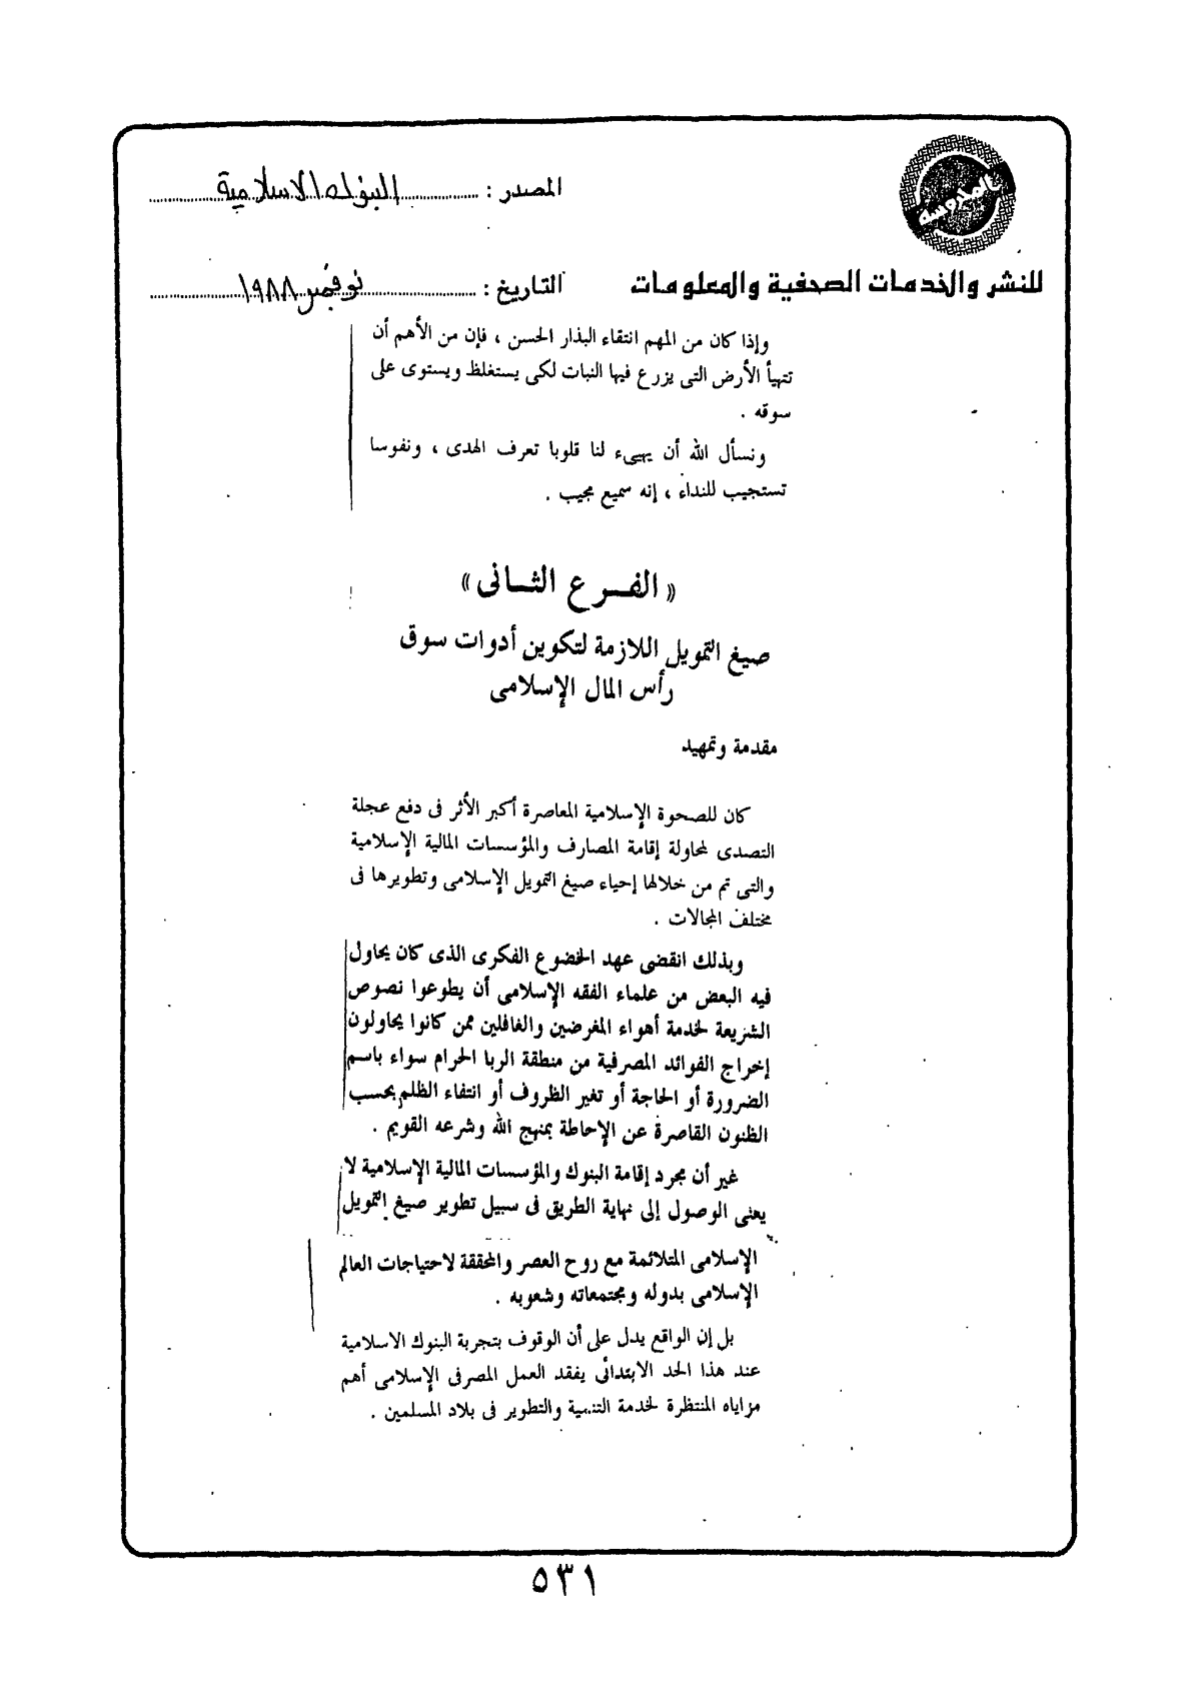 المصدر : البنوك الاسلامية
للنشر والخدمات الصحفية والمعلومات
التاريخ : نوفمبر ١٩٨٨
وإذا كان من المهم انتقاء البذار الحسن ، فإن من الأهم أن
تتهيأ الأرض التى يزرع فيها النبات لكى يستغلظ ويستوى على
سوقه .
ونسأل الله أن يهيىء لنا قلوبا تعرف الهدى ، ونفوسا
تستجيب للنداء ، إنه سميع مجيب .
« الفـرع الثـانى »
صيغ التمويل اللازمة لتكوين أدوات سوق
رأس المال الإسلامى
مقدمة وتمهيد
كان للصحوة الإسلامية المعاصرة أكبر الأثر فى دفع عجلة
التصدى لمحاولة إقامة المصارف والمؤسسات المالية الإسلامية
والتى تم من خلالها إحياء صيغ التمويل الإسلامى وتطويرها فى
مختلف المجالات .
وبذلك انقضى عهد الخضوع الفكرى الذى كان يحاول
فيه البعض من علماء الفقه الإسلامى أن يطوعوا نصوص
الشريعة لخدمة أهواء المغرضين والغافلين ممن كانوا يحاولون
إخراج الفوائد المصرفية من منطقة الربا الحرام سواء باسم
الضرورة أو الحاجة أو تغير الظروف أو انتفاء الظلم بحسب
الظنون القاصرة عن الإحاطة بمنهج الله وشرعه القويم .
غير أن مجرد إقامة البنوك والمؤسسات المالية الإسلامية لا
يعنى الوصول إلى نهاية الطريق فى سبيل تطوير صيغ التمويل
الإسلامى المتلائمة مع روح العصر والمحققة لاحتياجات العالم
الإسلامى بدوله ومجتمعاته وشعوبه .
بل إن الواقع يدل على أن الوقوف بتجربة البنوك الاسلامية
عند هذا الحد الابتدائى يفقد العمل المصرفى الإسلامى أهم
مزاياه المنتظرة لخدمة التنمية والتطوير فى بلاد المسلمين .
٥٣١